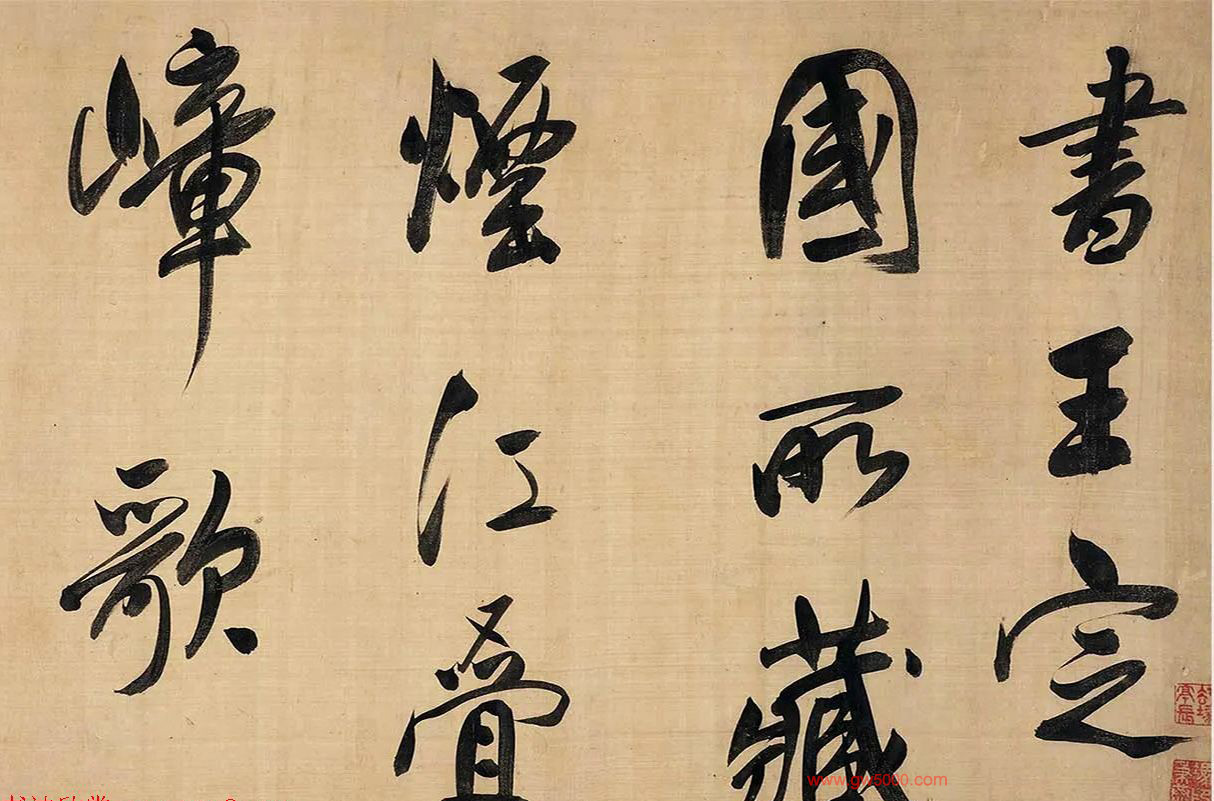 書王定
國所藏
煙江疊
嶂歌
www.gw5000.com